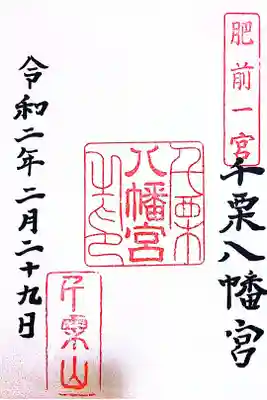 肥前一宮
千栗八幡宮
千栗八幡宮之印
千栗山
令和二年二月二十九日